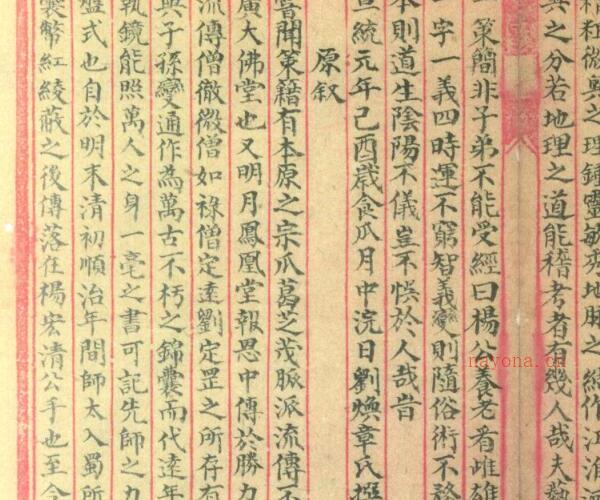 精粗微奧之理鍾靈毓秀地脉之結作江淮
奧之分若地理之道能稽考者有幾人哉夫
策簡非子弟不能受經曰楊公養老看雌雄
一字一義四時運不窮智義變則隨俗術不
本則道生陰陽不儀豈不悞於人哉旹
宣統元年己酉歲食瓜月中浣日劉煥章氏撰
原叙
嘗聞策籍有本原之宗瓜葛芝茂脈派流傳不
廣大佛堂也又明月鳳凰堂報恩中傳於勝力
流傳僧徹微僧如祿僧定遠劉定罡之所存有
與子孫變通作為萬古不朽之錦囊而代遠年
執鏡能照萬人之身一毫之書可記先師之力
盤式也自於明末清初順治年間師太入蜀所
裹幣紅綾蔽之後傳落在楊宏清公手也至今
nayona.cn